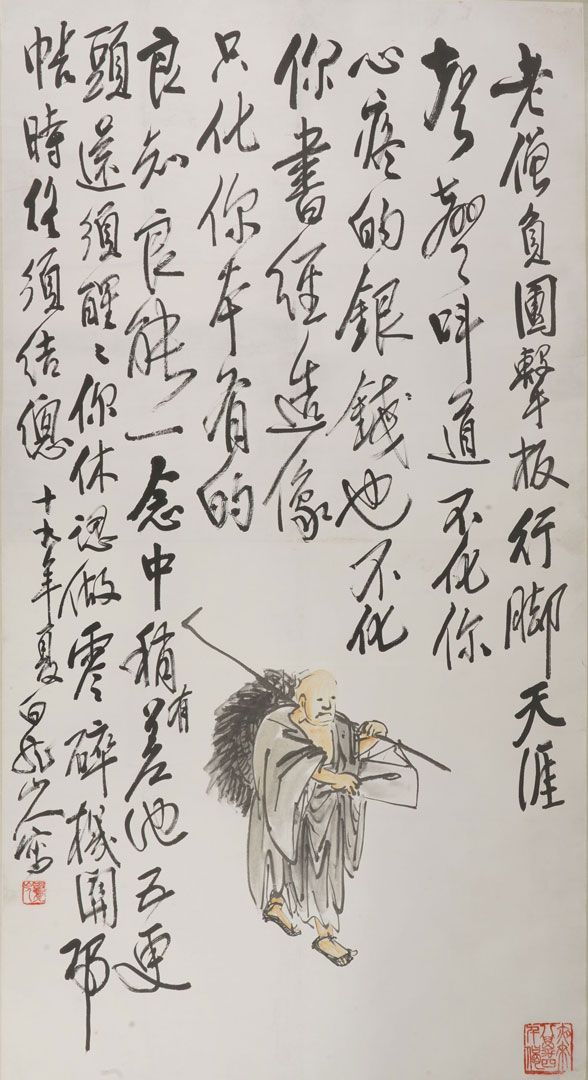 老僧負團擊板行腳天涯
聲聲叫道不化你
心疼的銀錢也不化
你書經造像
只化你本有的
良知良能一念中稍有差池五更
頭還須醒〻你休認做零碎機關那
時終須結總 十九年夏 白龍山人寫